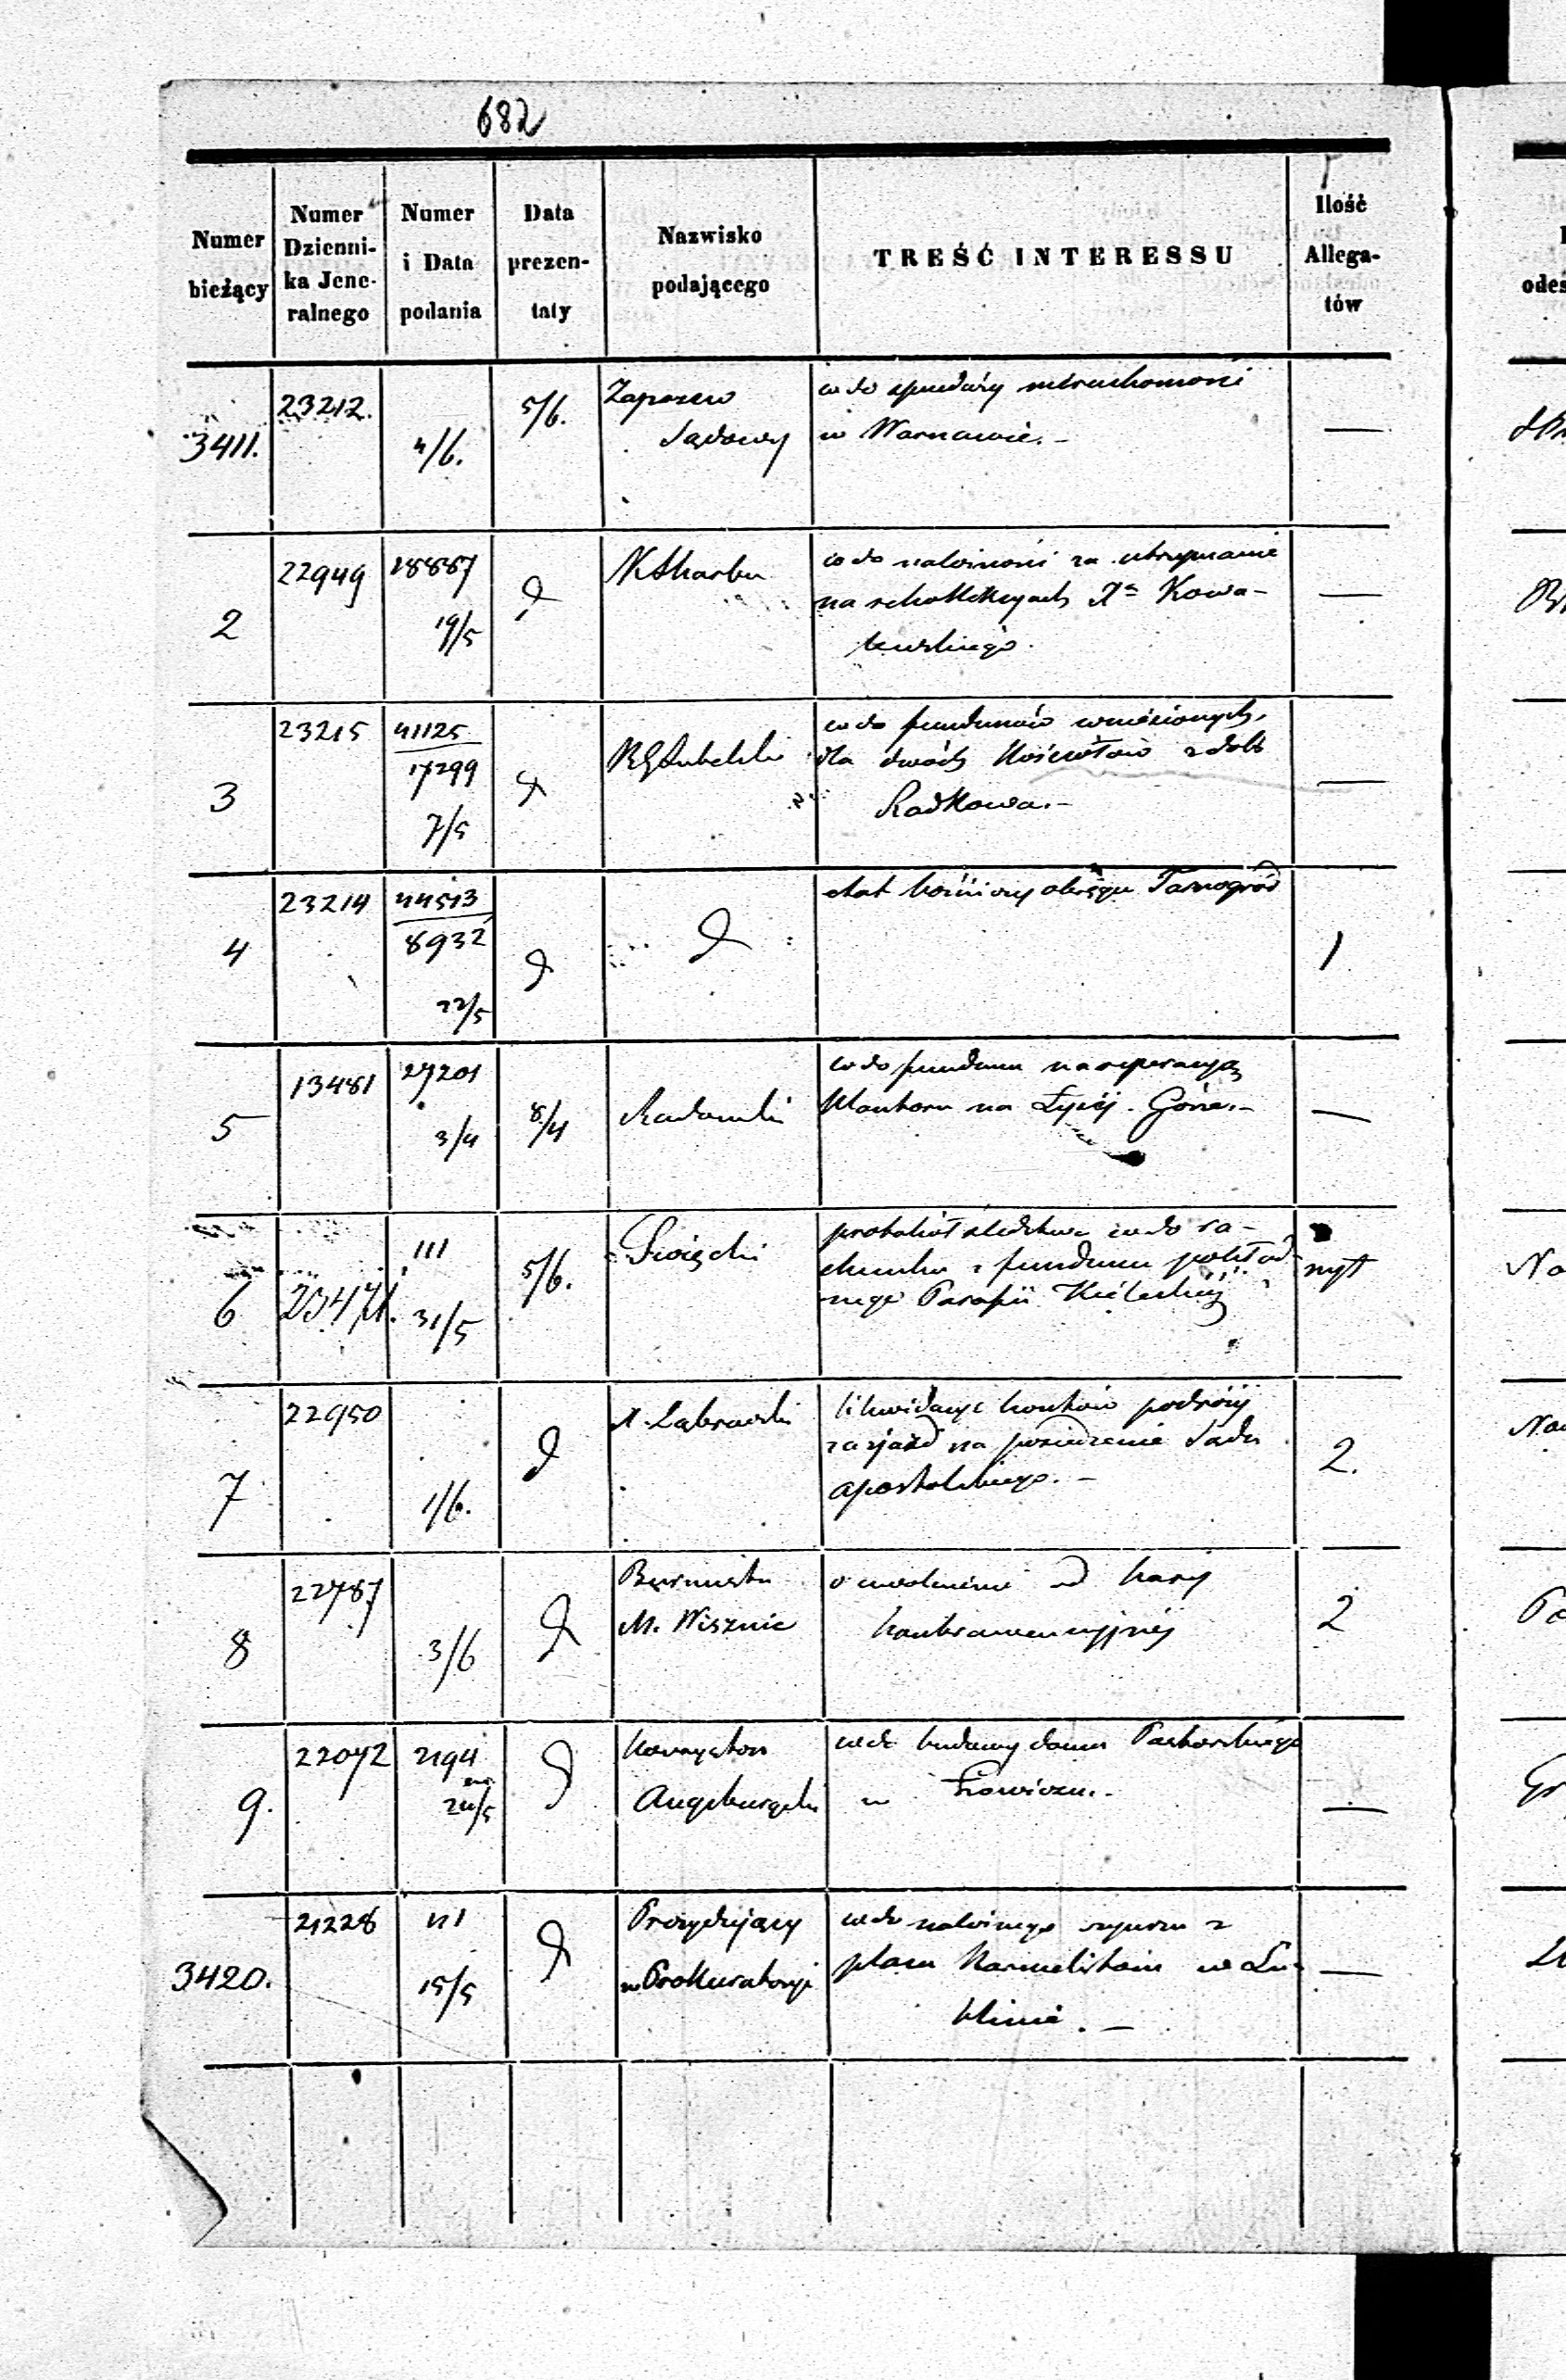 682
Numer bieżący
Numer Dzienni-ka Jene-ralnego
Numer i Data podania
Data prezen-taty
Nazwisko podającego
TREŚĆ INTERESSU
Ilość Allega-tów
odes
3411. 23212. 4/6. 5/6. Zapozew co do sprzedaży nieruchomości —
Sądowy w Warszawie. –
2 22949 18887 19/5 co do należności za utrzymanie —
na rekollekcyach Xa Kowa-
lewskiego.
3 23215 41125 17299 7/5 RG Lubelski co do funduszów wniesionych —
dla dwóch Kościołów z dóbr
Radkowa. –
4 23214 44513 8932 22/5 etat bożnicy okręgu Tarnogród 1
5 13481 27201 3/4 8/4 Radomski co do funduszu na reperacyą —
Klasztoru na Łysej Górze. –
6 23471. 111 31/5 5/6. Swięcki protokół śledztwa co do ra-
chunku z funduszu pokład-
nego Parafii Kieleckiej
7 22950 1/6. X. Dąbrowski likwidacye kosztów podróży 2.
za zjazd na posiedzenie Sądu
apostolskiego. –
8 22787 3/6 Burmistrz o uwolnienie od kary 2
M. Wisznic kontrawencyjnej
9. 22072 2194 24/5 Konsystorz co do budowy domu Pastorskiego —
Augsburgski w Łowiczu. –
3420. 21228 111 15/5 Prezydujący co do należnego czynszu z —
w Prokuratoryi placu Karmelitów w Lu-
blinie. –